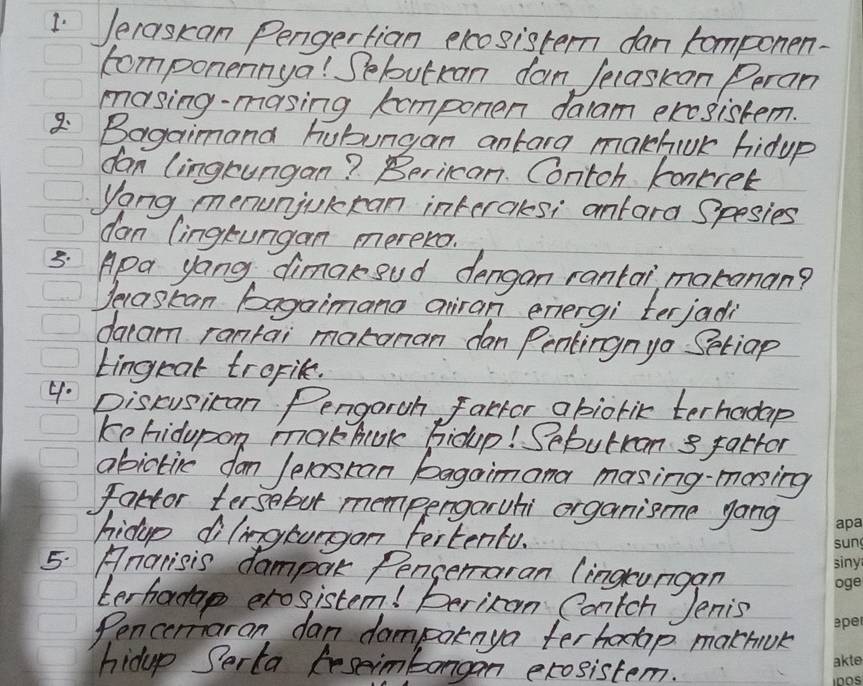 1. Jelaskan Pengertian ekosistem dan komponen-
komponennya! Sebutkan dan Jelaskan Peran
masing-masing komponen dalam ekosistem.
2. Bagaimana hubungan antara makhluk hidup
dan lingkungan? Berikan Contoh konkret
yang menunjukkan interaksi antara Spesies
dan lingkungan mereka.
3. Apa yang dimaksud dengan rantai makanan?
Jelaskan bagaimana aliran energi terjadi
dalam rantai makanan dan Pentingnya Setiap
tingkat trofik.
4. Diskusikan Pengaruh Faktor abiotik terhadap
kehidupan makhluk hidup! Sebutkan 3 faktor
abiotik dan Jelaskan bagaimana masing-masing
faktor tersebut mempengaruhi organisme yang
hidup dilingkungan tertentu.
5. Analisis dampak Pencemaran lingkungan
terhadap ekosistem! berikan Contoh Jenis
Pencemaran dan dampaknya terhadap makhluk
hidup Serta keseimbangan ekosistem.
apa
sung
siny
oge
eper
akte
pos